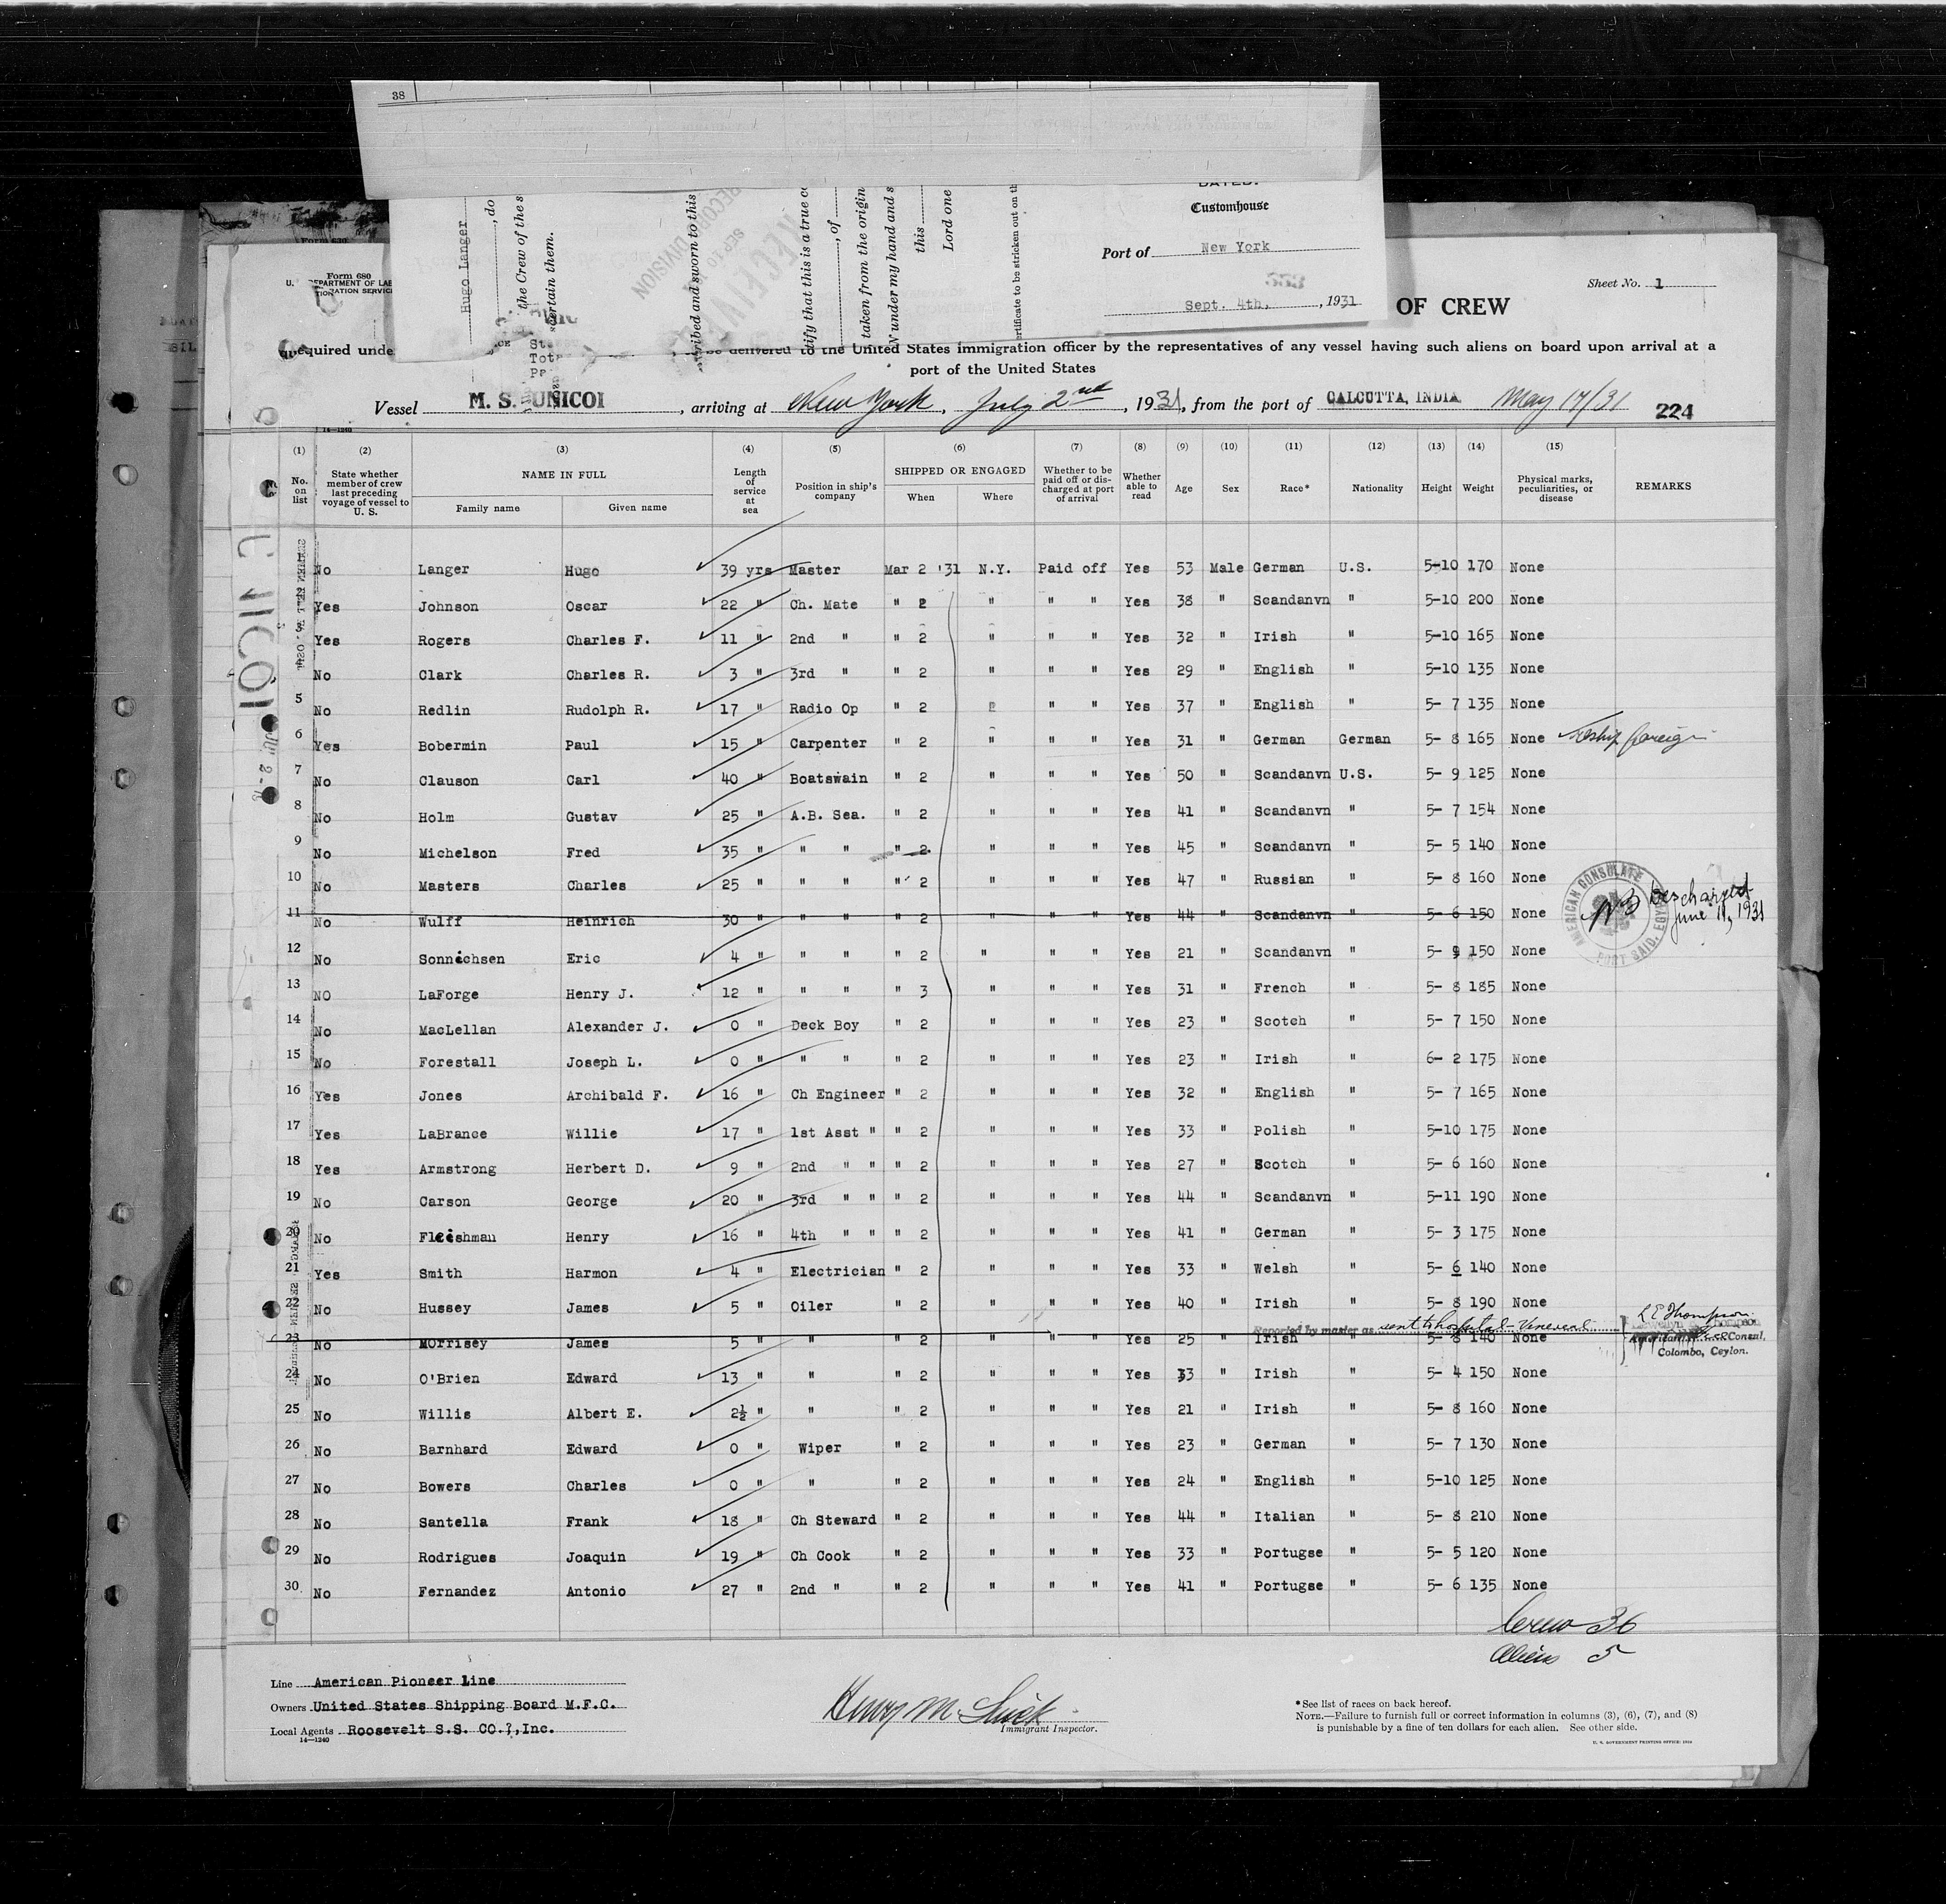 38
DATED:
Customhouse
Port of New York
Sept. 4th, , 1931
Hugo Langer
, do
the Crew of the s
certain them.
ribed and sworn to this
RECORD DIVISION
SEP 10
RECEIVED
ify that this is a true co
, of
taken from the origin
N under my hand and s
this
Lord one
ertificate to be stricken out on th
Form 680
U. DEPARTMENT OF LAB
RATION SERVIC
OF CREW
Sheet No. 1
equired unde be delivered to the United States immigration officer by the representatives of any vessel having such aliens on board upon arrival at a
port of the United States
Vessel M. S. UNICOI , arriving at New York , July 2nd , 1931, from the port of CALCUTTA, INDIA. May 17/31 224
14—1240
(1) (2) (3) (4) (5) (6) (7) (8) (9) (10) (11) (12) (13) (14) (15)
No. on list State whether member of crew last preceding voyage of vessel to U. S. NAME IN FULL Family name Given name Length of service at sea Position in ship's company SHIPPED OR ENGAGED When Where Whether to be paid off or discharged at port of arrival Whether able to read Age Sex Race* Nationality Height Weight Physical marks, peculiarities, or disease REMARKS
No Langer Hugo 39 yrs Master Mar 2 '31 N.Y. Paid off Yes 53 Male German U.S. 5-10 170 None
Yes Johnson Oscar 22 " Ch. Mate " 2 " " " Yes 38 " Scandanvn " 5-10 200 None
Yes Rogers Charles F. 11 " 2nd " " 2 " " " Yes 32 " Irish " 5-10 165 None
No Clark Charles R. 3 " 3rd " " 2 " " " Yes 29 " English " 5-10 135 None
5 No Redlin Rudolph R. 17 " Radio Op " 2 " " " Yes 37 " English " 5- 7 135 None
6 Yes Bobermin Paul 15 " Carpenter " 2 " " " Yes 31 " German German 5- 8 165 None Reship foreign
7 No Clauson Carl 40 " Boatswain " 2 " " " Yes 50 " Scandanvn U.S. 5- 9 125 None
8 No Holm Gustav 25 " A.B. Sea. " 2 " " " Yes 41 " Scandanvn " 5- 7 154 None
9 No Michelson Fred 35 " " " " 2 " " " Yes 45 " Scandanvn " 5- 5 140 None
10 No Masters Charles 25 " " " " 2 " " " Yes 47 " Russian " 5- 8 160 None
11 No Wulff Heinrich 30 " " " " 2 " " " Yes 44 " Scandanvn " 5- 6 150 None Descharged June 11, 1931
AMERICAN CONSULATE PORT SAID, EGYPT
12 No Sonnichsen Eric 4 " " " " 2 " " " Yes 21 " Scandanvn " 5- 9 150 None
13 NO LaForge Henry J. 12 " " " " 3 " " " Yes 31 " French " 5- 8 185 None
14 No MacLellan Alexander J. 0 " Deck Boy " 2 " " " Yes 23 " Scotch " 5- 7 150 None
15 No Forestall Joseph L. 0 " " " " 2 " " " Yes 23 " Irish " 6- 2 175 None
16 Yes Jones Archibald F. 16 " Ch Engineer " 2 " " " Yes 32 " English " 5- 7 165 None
17 Yes LaBrance Willie 17 " 1st Asst " " 2 " " " Yes 33 " Polish " 5-10 175 None
18 Yes Armstrong Herbert D. 9 " 2nd " " " 2 " " " Yes 27 " Scotch " 5- 6 160 None
19 No Carson George 20 " 3rd " " " 2 " " " Yes 44 " Scandanvn " 5-11 190 None
20 No Fleishman Henry 16 " 4th " " " 2 " " " Yes 41 " German " 5- 3 175 None
21 Yes Smith Harmon 4 " Electrician " 2 " " " Yes 33 " Welsh " 5- 6 140 None
22 No Hussey James 5 " Oiler " 2 " " " Yes 40 " Irish " 5- 8 190 None
Reported by master as sent to hospital Venereal L E Thompson
23 No MOrrisey James 5 " " " 2 " " " Yes 25 " Irish " 5- 8 140 None American Vice Consul, Colombo, Ceylon.
24 No O'Brien Edward 13 " " " 2 " " " Yes 33 " Irish " 5- 4 150 None
25 No Willis Albert E. 2½ " " " 2 " " " Yes 21 " Irish " 5- 8 160 None
26 No Barnhard Edward 0 " Wiper " 2 " " " Yes 23 " German " 5- 7 130 None
27 No Bowers Charles 0 " " " 2 " " " Yes 24 " English " 5-10 125 None
28 No Santella Frank 18 " Ch Steward " 2 " " " Yes 44 " Italian " 5- 8 210 None
29 No Rodrigues Joaquin 19 " Ch Cook " 2 " " " Yes 33 " Portugse " 5- 5 120 None
30 No Fernandez Antonio 27 " 2nd " " 2 " " " Yes 41 " Portugse " 5- 6 135 None
Crew 36
Aliens 5
Line American Pioneer Line
Owners United States Shipping Board M.F.C.
Local Agents Roosevelt S.S. CO.,Inc.
14—1240
Henry M
Immigrant Inspector.
*See list of races on back hereof.
NOTE.—Failure to furnish full or correct information in columns (3), (6), (7), and (8)
is punishable by a fine of ten dollars for each alien. See other side.